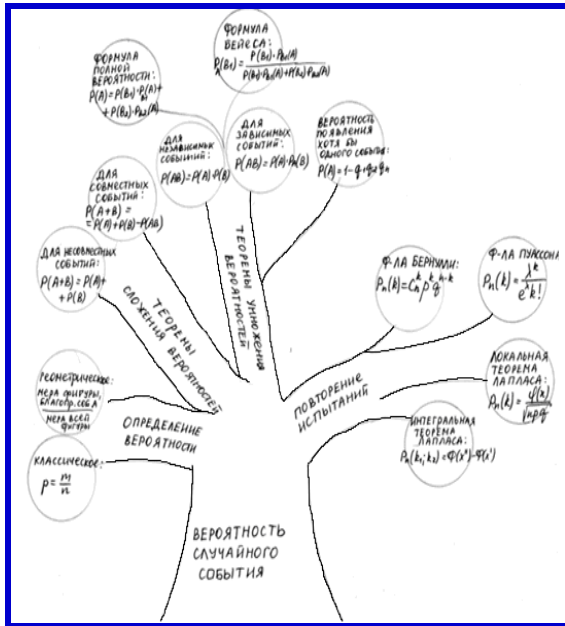 ФОРМУЛА
ПОЛНОЙ
ВЕРОЯТНОСТИ:
P(A)=P(B₁)·P_B₁(A)+
+P(B₂)·P_B₂(A)
ФОРМУЛА
БЕЙЕСА:
P_A(B₁)=P(B₁)·P_B₁(A)
P(B₁)·P_B₁(A)+P(B₂)·P_B₂(A)
ДЛЯ
НЕЗАВИСИМЫХ
СОБЫТИЙ:
P(AB)=P(A)·P(B)
ДЛЯ
ЗАВИСИМЫХ
СОБЫТИЙ:
P(AB)=P(A)·P_A(B)
ВЕРОЯТНОСТЬ
ПОЯВЛЕНИЯ
ХОТЯ БЫ
ОДНОГО СОБЫТИЯ:
ДЛЯ
СОВМЕСТНЫХ
СОБЫТИЙ:
P(A+B)=
=P(A)+P(B)-P(AB)
ДЛЯ НЕСОВМЕСТНЫХ
СОБЫТИЙ:
P(A+B)=P(A)+
+P(B)
ТЕОРЕМЫ
СЛОЖЕНИЯ ВЕРОЯТНОСТЕЙ
ТЕОРЕМЫ УМНОЖЕНИЯ
ВЕРОЯТНОСТЕЙ
Ф-ЛА БЕРНУЛЛИ:
Pₙ(k)=Cₙᵏpᵏqⁿ⁻ᵏ
Ф-ЛА ПУАССОНА
Pₙ(k)=λᵏ
e^λ k!
ЛОКАЛЬНАЯ
ТЕОРЕМА
ЛАПЛАСА:
Pₙ(k)=φ(x)
√npq
ИНТЕГРАЛЬНАЯ
ТЕОРЕМА
ЛАПЛАСА:
Pₙ(k₁;k₂)=Φ(x")-Φ(x')
ПОВТОРЕНИЕ
ИСПЫТАНИЙ
ГЕОМЕТРИЧЕСКОЕ:
МЕРА ФИГУРЫ,
БЛАГОПР. СОБ.А
МЕРА ВСЕЙ
ФИГУРЫ
КЛАССИЧЕСКОЕ:
p=m
n
ОПРЕДЕЛЕНИЕ
ВЕРОЯТНОСТИ
ВЕРОЯТНОСТЬ
СЛУЧАЙНОГО
СОБЫТИЯ